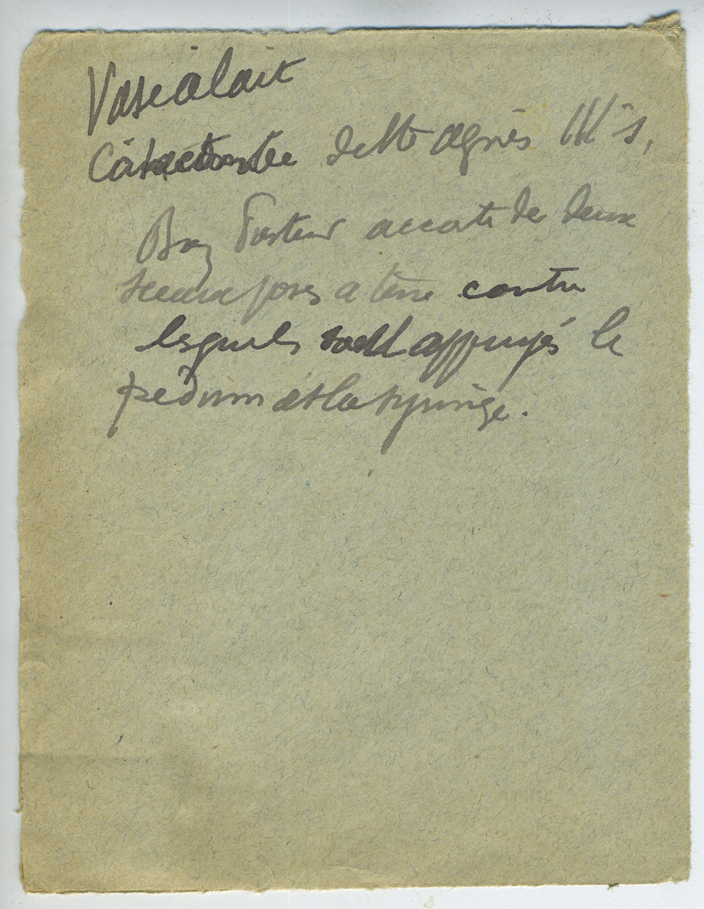 Vase à lait
Catacombe de Ste Agnès III s,
Bon Pasteur accosté de deux
seaux posés a terre contre
lesquels sont appuyés le
pedum et la syringe.